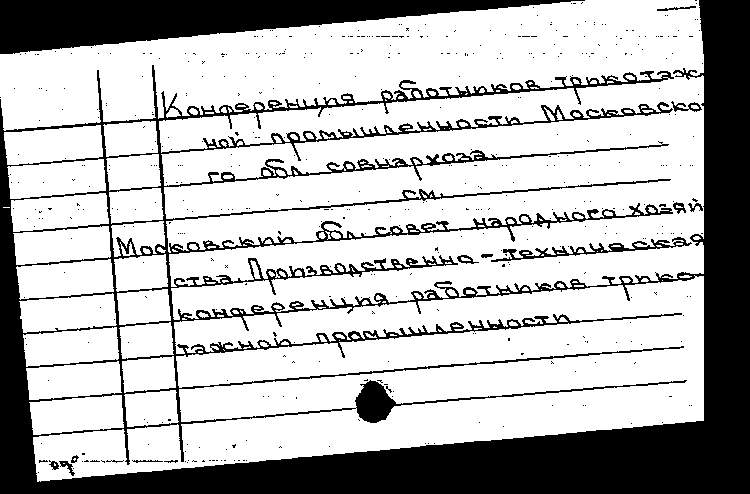 Конференция работников трикотаж
ной промышленности Московско
го обл. совнархоза.
см.
Московский обл. совет народного хозяй
ства. Производственно-техническая
конференция работников трико-
тажной промышленности.